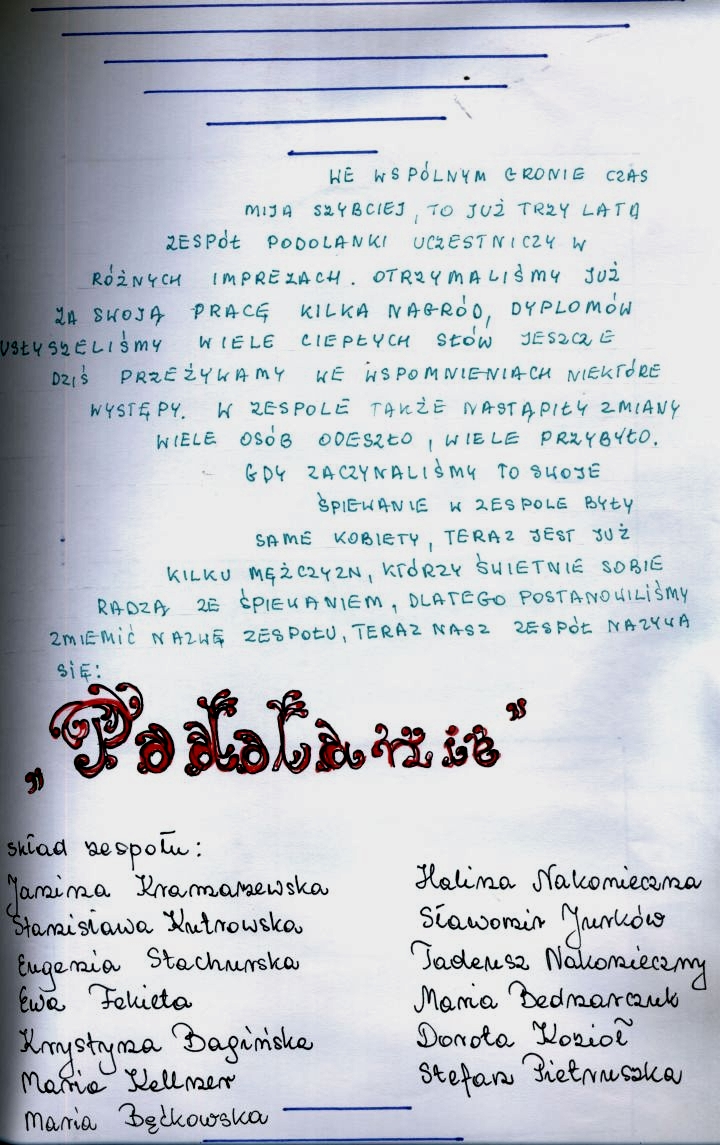 WE WSPÓLNYM GRONIE CZAS
MIJA SZYBCIEJ, TO JUŻ TRZY LATA
ZESPÓŁ PODOLANKI UCZESTNICZY W
RÓŻNYCH IMPREZACH. OTRZYMALIŚMY JUŻ
ZA SWOJĄ PRACĘ KILKA NAGRÓD, DYPLOMÓW
USŁYSZELIŚMY WIELE CIEPŁYCH SŁÓW JESZCZE
DZIŚ PRZEŻYWAMY WE WSPOMNIENIACH NIEKTÓRE
WYSTĘPY. W ZESPOLE TAKŻE NASTĄPIŁY ZMIANY
WIELE OSÓB ODESZŁO, WIELE PRZYBYŁO.
GDY ZACZYNALIŚMY TO SWOJE
ŚPIEWANIE W ZESPOLE BYŁY
SAME KOBIETY, TERAZ JEST JUŻ
KILKU MĘŻCZYZN, KTÓRZY ŚWIETNIE SOBIE
RADZĄ ZE ŚPIEWANIEM, DLATEGO POSTANOWILIŚMY
ZMIEMIĆ NAZWĘ ZESPOŁU, TERAZ NASZ ZESPÓŁ NAZYWA
SIĘ:
„Podolanie"
skład zespołu:
Janina Kranarzewska
Stanisława Kutrowska
Eugenia Stachurska
Ewa Fekieta
Krystyna Bagińska
Maria Kellner
Maria Bęćkowska
Halina Nakonieczna
Sławomir Jurków
Tadeusz Nakonieczny
Maria Bednarczuk
Dorota Kozioł
Stefan Pietruszka